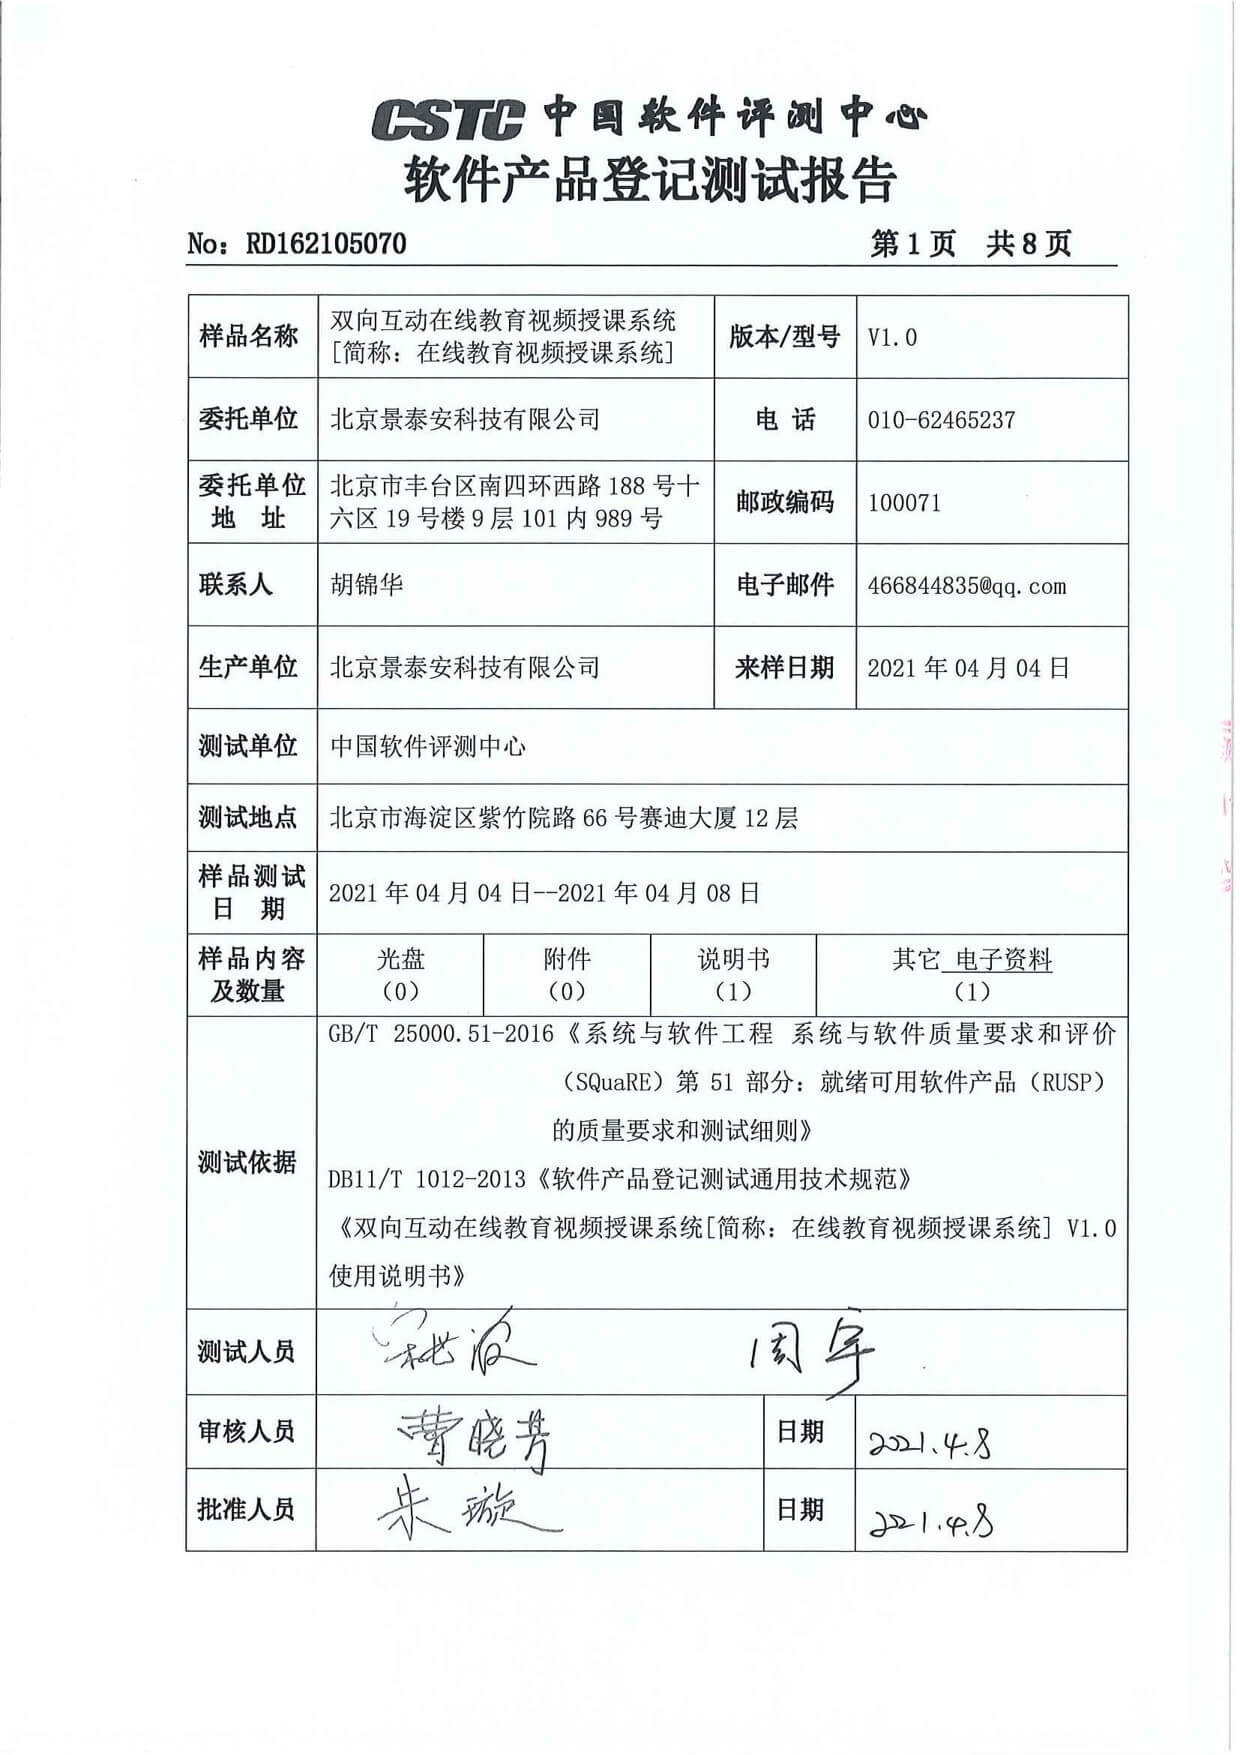 CSTC 中国软件评测中心
软件产品登记测试报告
No: RD162105070 第1页 共8页
样品名称 双向互动在线教育视频授课系统 [简称: 在线教育视频授课系统] 版本/型号 V1.0
委托单位 北京景泰安科技有限公司 电 话 010-62465237
委托单位地 址 北京市丰台区南四环西路 188 号十六区 19 号楼 9 层 101 内 989 号 邮政编码 100071
联系人 胡锦华 电子邮件 466844835@qq.com
生产单位 北京景泰安科技有限公司 来样日期 2021 年 04 月 04 日
测试单位 中国软件评测中心
测试地点 北京市海淀区紫竹院路 66 号赛迪大厦 12 层
样品测试日 期 2021 年 04 月 04 日--2021 年 04 月 08 日
样品内容及数量 光盘 (0) 附件 (0) 说明书 (1) 其它 电子资料 (1)
测试依据
GB/T 25000.51-2016《系统与软件工程 系统与软件质量要求和评价
（SQuaRE）第 51 部分: 就绪可用软件产品（RUSP）
的质量要求和测试细则》
DB11/T 1012-2013《软件产品登记测试通用技术规范》
《双向互动在线教育视频授课系统[简称: 在线教育视频授课系统] V1.0
使用说明书》
测试人员 周宇
审核人员 曹晓芳 日期 2021.4.8
批准人员 朱璇 日期 2021.4.8